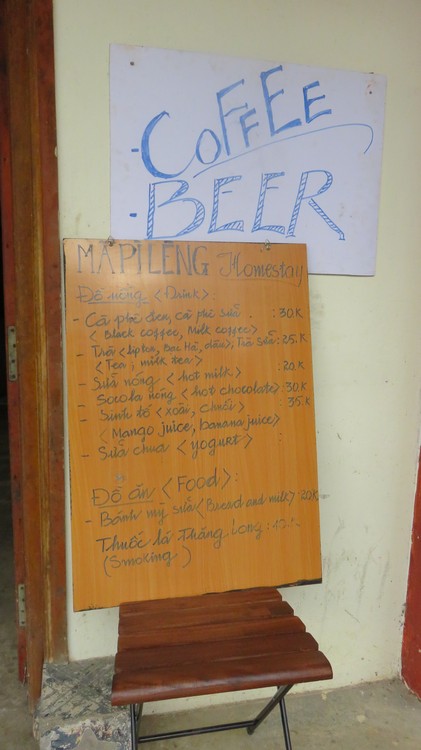 - COFFEE
- BEER
MAPILENG Homestay
Đồ uống <Drink>:
- Cà phê đen, Cà phê sữa : 30K
<Black coffee, Milk coffee>
- Trà <lipton, Bạc Hà, đào>, Trà Sữa : 25K
<Tea, milk tea>
- Sữa nóng <hot milk> : 20K
- Socola nóng <hot chocolate> : 30K
- Sinh tố <xoài, chuối> : 35K
<Mango juice, banana juice>
- Sữa chua <yogurt> :
Đồ ăn <Food>:
- Bánh mỳ sữa <Bread and milk> 20K
Thuốc lá Thăng Long :
(Smoking)